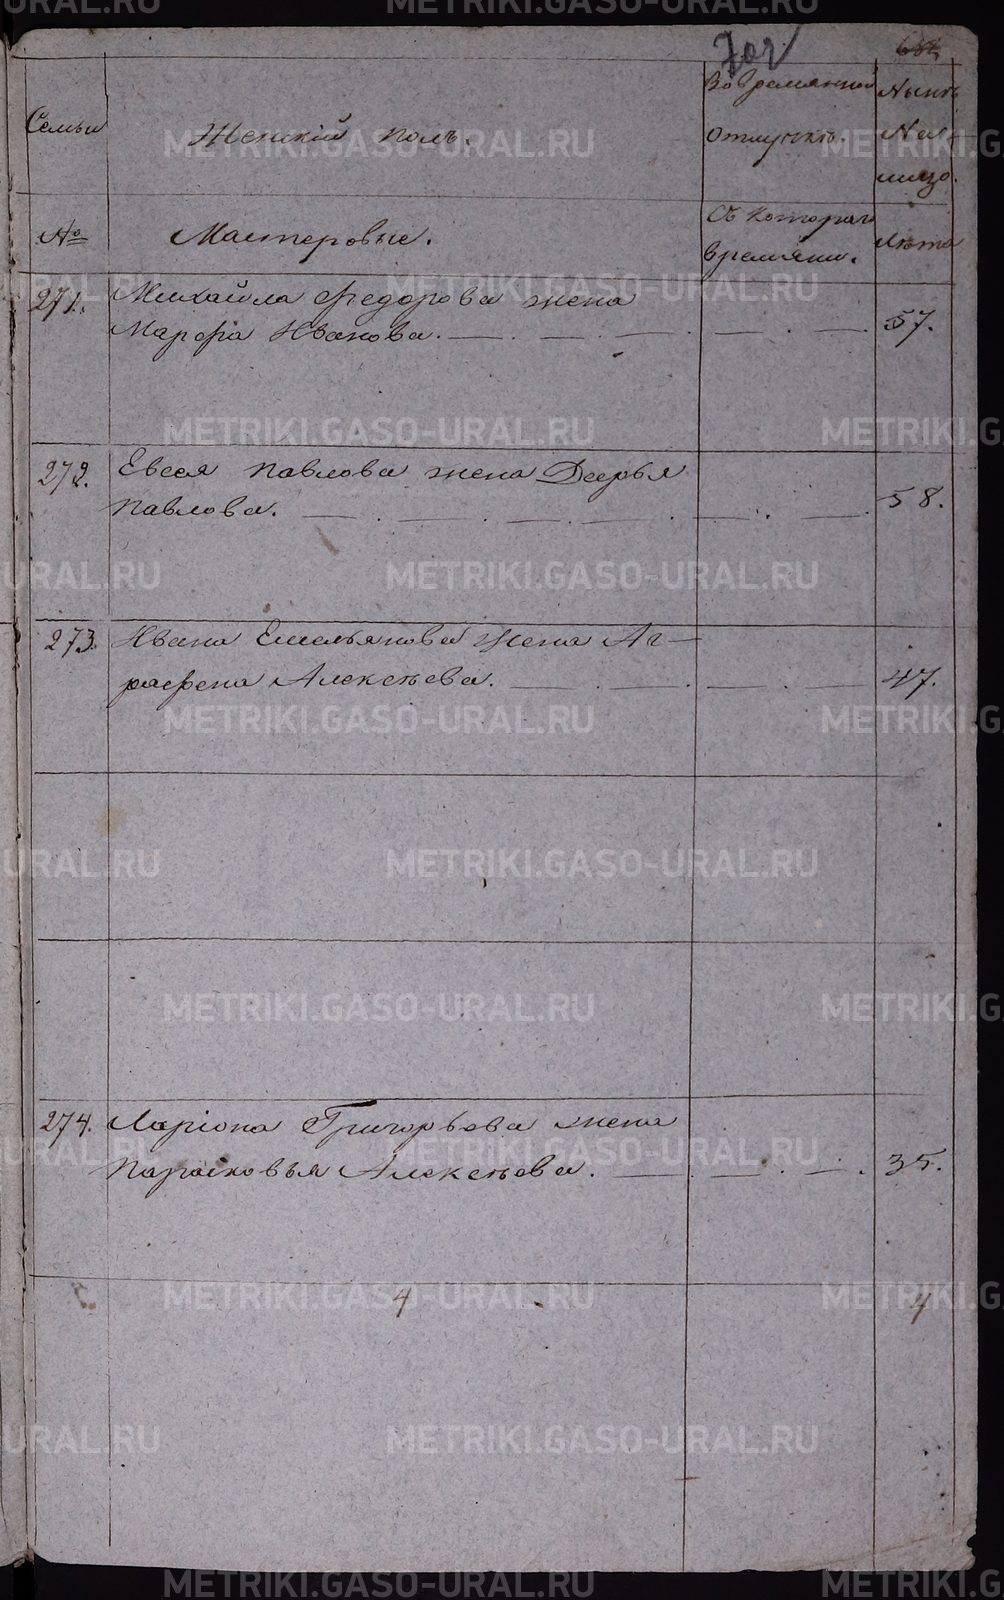 702
Семьи
Женскій полъ.
Во времянной
отлучкѣ.
Нынѣ
На
лицо.
№
Мастеровые.
Съ котораго
времяни.
Лѣта
271. Михайла Федорова жена
Марфа Иванова. 57.
272. Евсея Павлова жена Дарья
Павлова. 58.
273. Ивана Емельянова жена Аг-
рафена Алексѣева. 47.
274. Ларіона Григорьева жена
Парасковья Алексѣева. 35.
4 4
METRIKI.GASO-URAL.RU